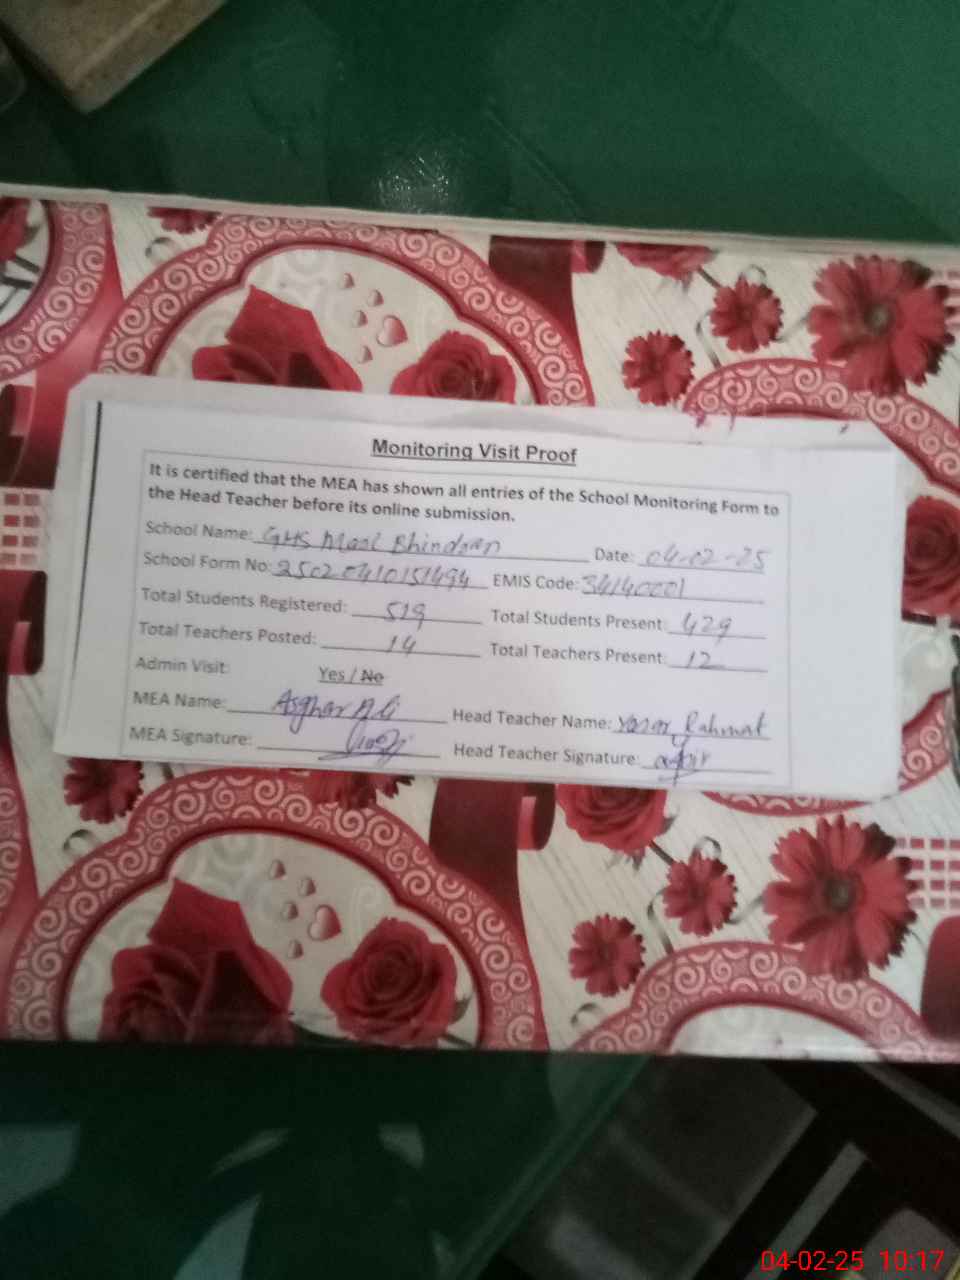 Monitoring Visit Proof
It is certified that the MEA has shown all entries of the School Monitoring Form to
the Head Teacher before its online submission.
School Name: GHS Maal Bhindran Date: 04-02-25
School Form No: 25020410151494 EMIS Code: 34140001
Total Students Registered: 519 Total Students Present: 429
Total Teachers Posted: 14 Total Teachers Present: 12
Admin Visit: Yes / No
MEA Name: Asghar Ali Head Teacher Name: Rahmat
MEA Signature: Head Teacher Signature:
04-02-25 10:17